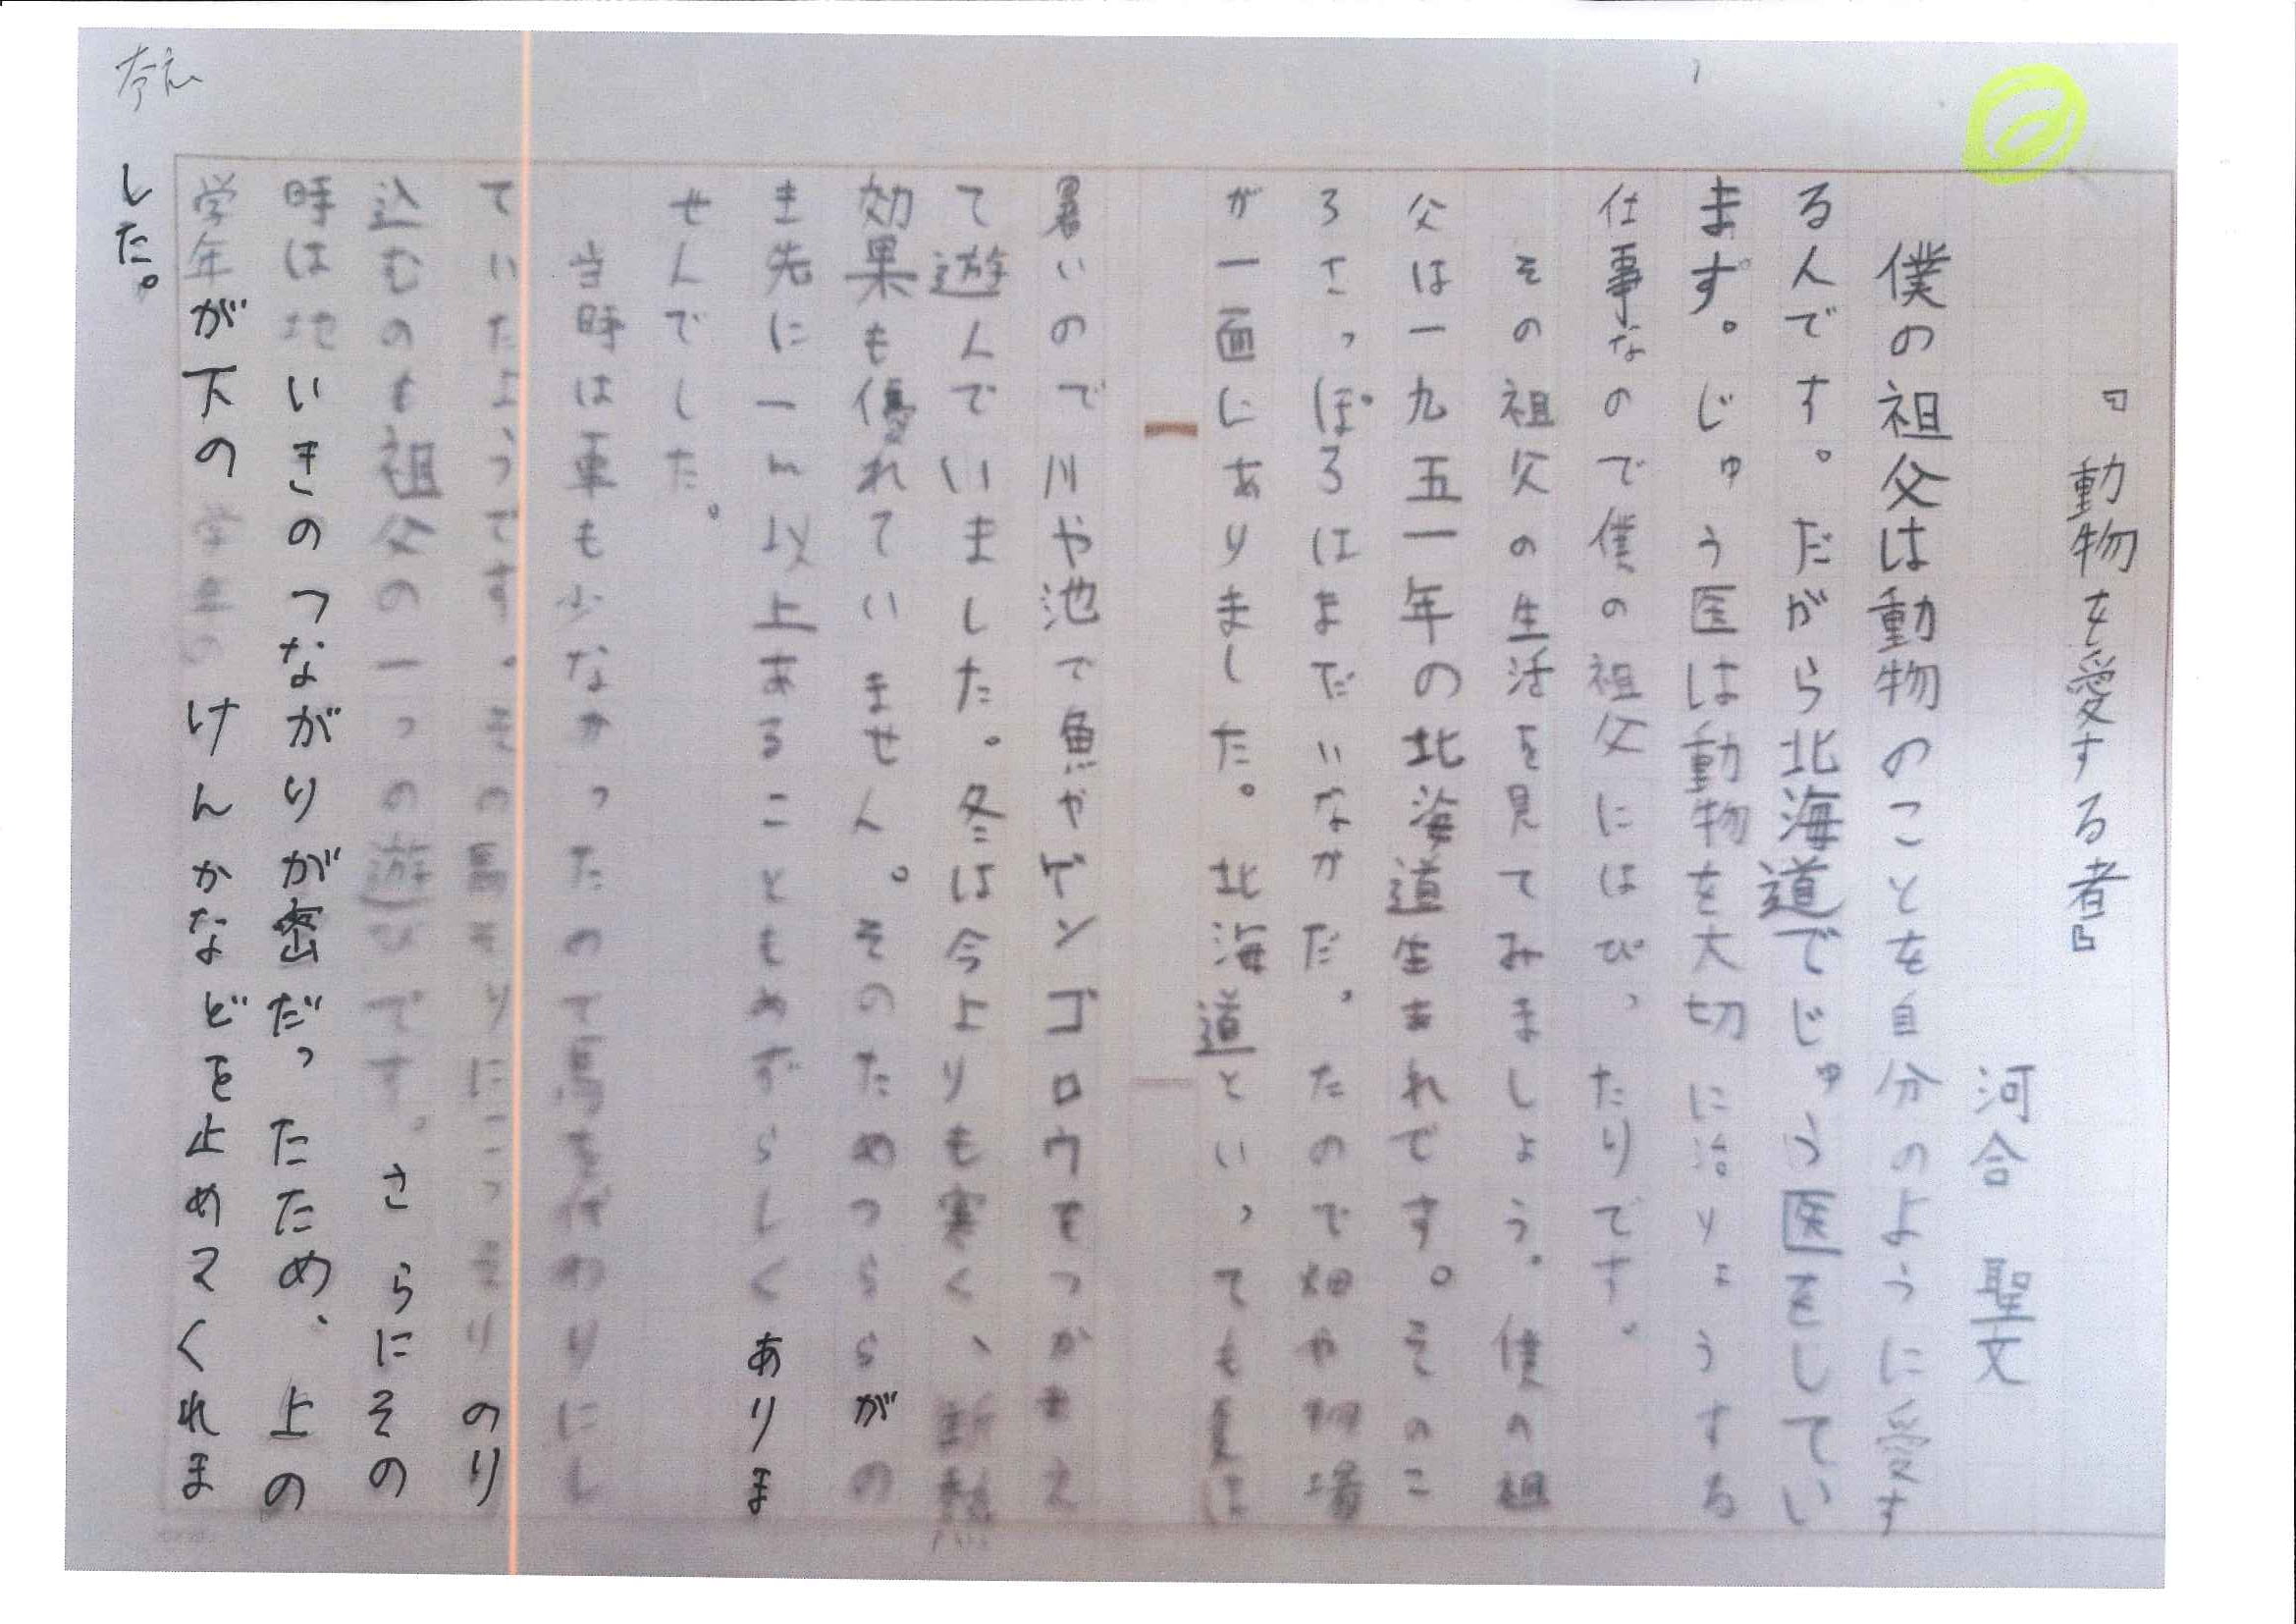 『動物を愛する者』
河合 聖文
僕の祖父は動物のことを自分のように愛す
る人です。だから北海道でじゅう医をしてい
ます。じゅう医は動物を大切に治りょうする
仕事なので僕の祖父にはぴったりです。
その祖父の生活を見てみましょう。僕の祖
父は一九五一年の北海道生まれです。そのこ
ろさっぽろはまだいなかだったので畑や牧場
が一面にありました。北海道といっても夏は
暑いので川や池で魚やゲンゴロウをつかまえ
て遊んでいました。冬は今よりも寒く、断熱
効果も優れていません。そのためつららがの
き先に一m以上あることもめずらしくありま
せんでした。
当時は車も少なかったので馬を代わりにし
ていたようです。その馬そりにこっそりのり
込むのも祖父の一つの遊びです。さらにその
時は地いきのつながりが密だったため、上の
学年が下の学年のけんかなどを止めてくれま
した。